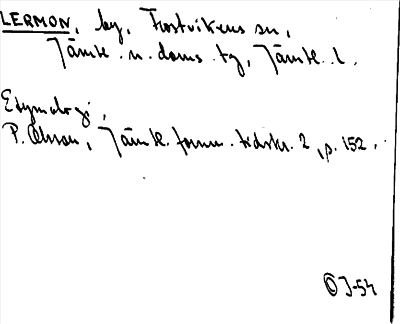 LERMON, by, Trostvikens sn,
Jämtl. n. doms. tg, Jämtl. l.
Etymologi,
P. Olsson, Jämtl. fornm. tidskr. 2, p. 152.
OJ-54